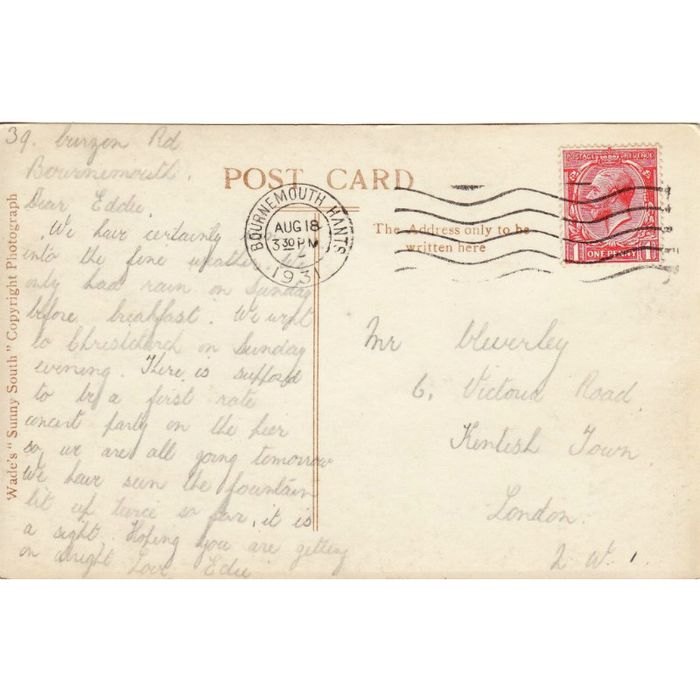 39. Curzon Rd
Bournemouth.
Dear Eddie,
We have certainly
into the fine weather, we
only had rain on Sunday
before breakfast. We went
to Christchurch on Sunday
evening. There is supposed
to be a first rate
concert party on the pier
so we are all going tomorrow
We have seen the fountain
lit up twice so far, it is
a sight. Hoping you are getting
on alright Love Edie
Wade's "Sunny South" Copyright Photograph
POST CARD
BOURNEMOUTH. HANTS
AUG 18
3 30 PM
1931
The Address only to be
written here
POSTAGE REVENUE
1 ONE PENNY 1
Mr Cleverley
6, Victoria Road
Kentish Town
London.
W.